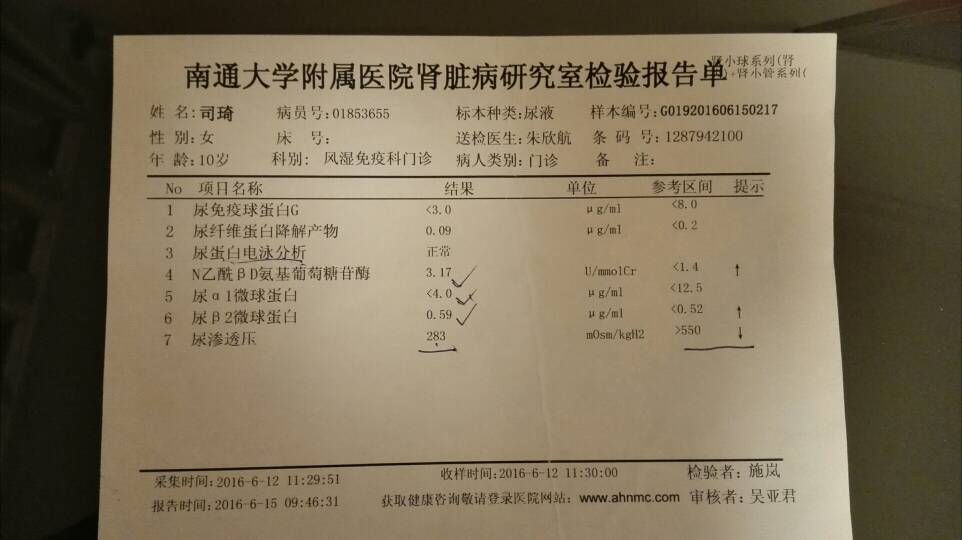 肾小球系列(肾
南通大学附属医院肾脏病研究室检验报告单
)+肾小管系列(
姓 名:司琦 病员号:01853655 标本种类:尿液 样本编号:G019201606150217
性 别:女 床 号: 送检医生:朱欣航 条 码 号:1287942100
年 龄:10岁 科别: 风湿免疫科门诊 病人类别:门诊 备 注:
No 项目名称 结果 单位 参考区间 提示
1 尿免疫球蛋白G <3.0 μg/ml <8.0
2 尿纤维蛋白降解产物 0.09 μg/ml <0.2
3 尿蛋白电泳分析 正常
4 N乙酰βD氨基葡萄糖苷酶 3.17 U/mmolCr <1.4 ↑
5 尿α1微球蛋白 <4.0 μg/ml <12.5
6 尿β2微球蛋白 0.59 μg/ml <0.52 ↑
7 尿渗透压 283 mOsm/kgH2 >550 ↓
采集时间:2016-6-12 11:29:51 收样时间:2016-6-12 11:30:00 检验者:施岚
报告时间:2016-6-15 09:46:31 获取健康咨询敬请登录医院网站: www.ahnmc.com 审核者:吴亚君